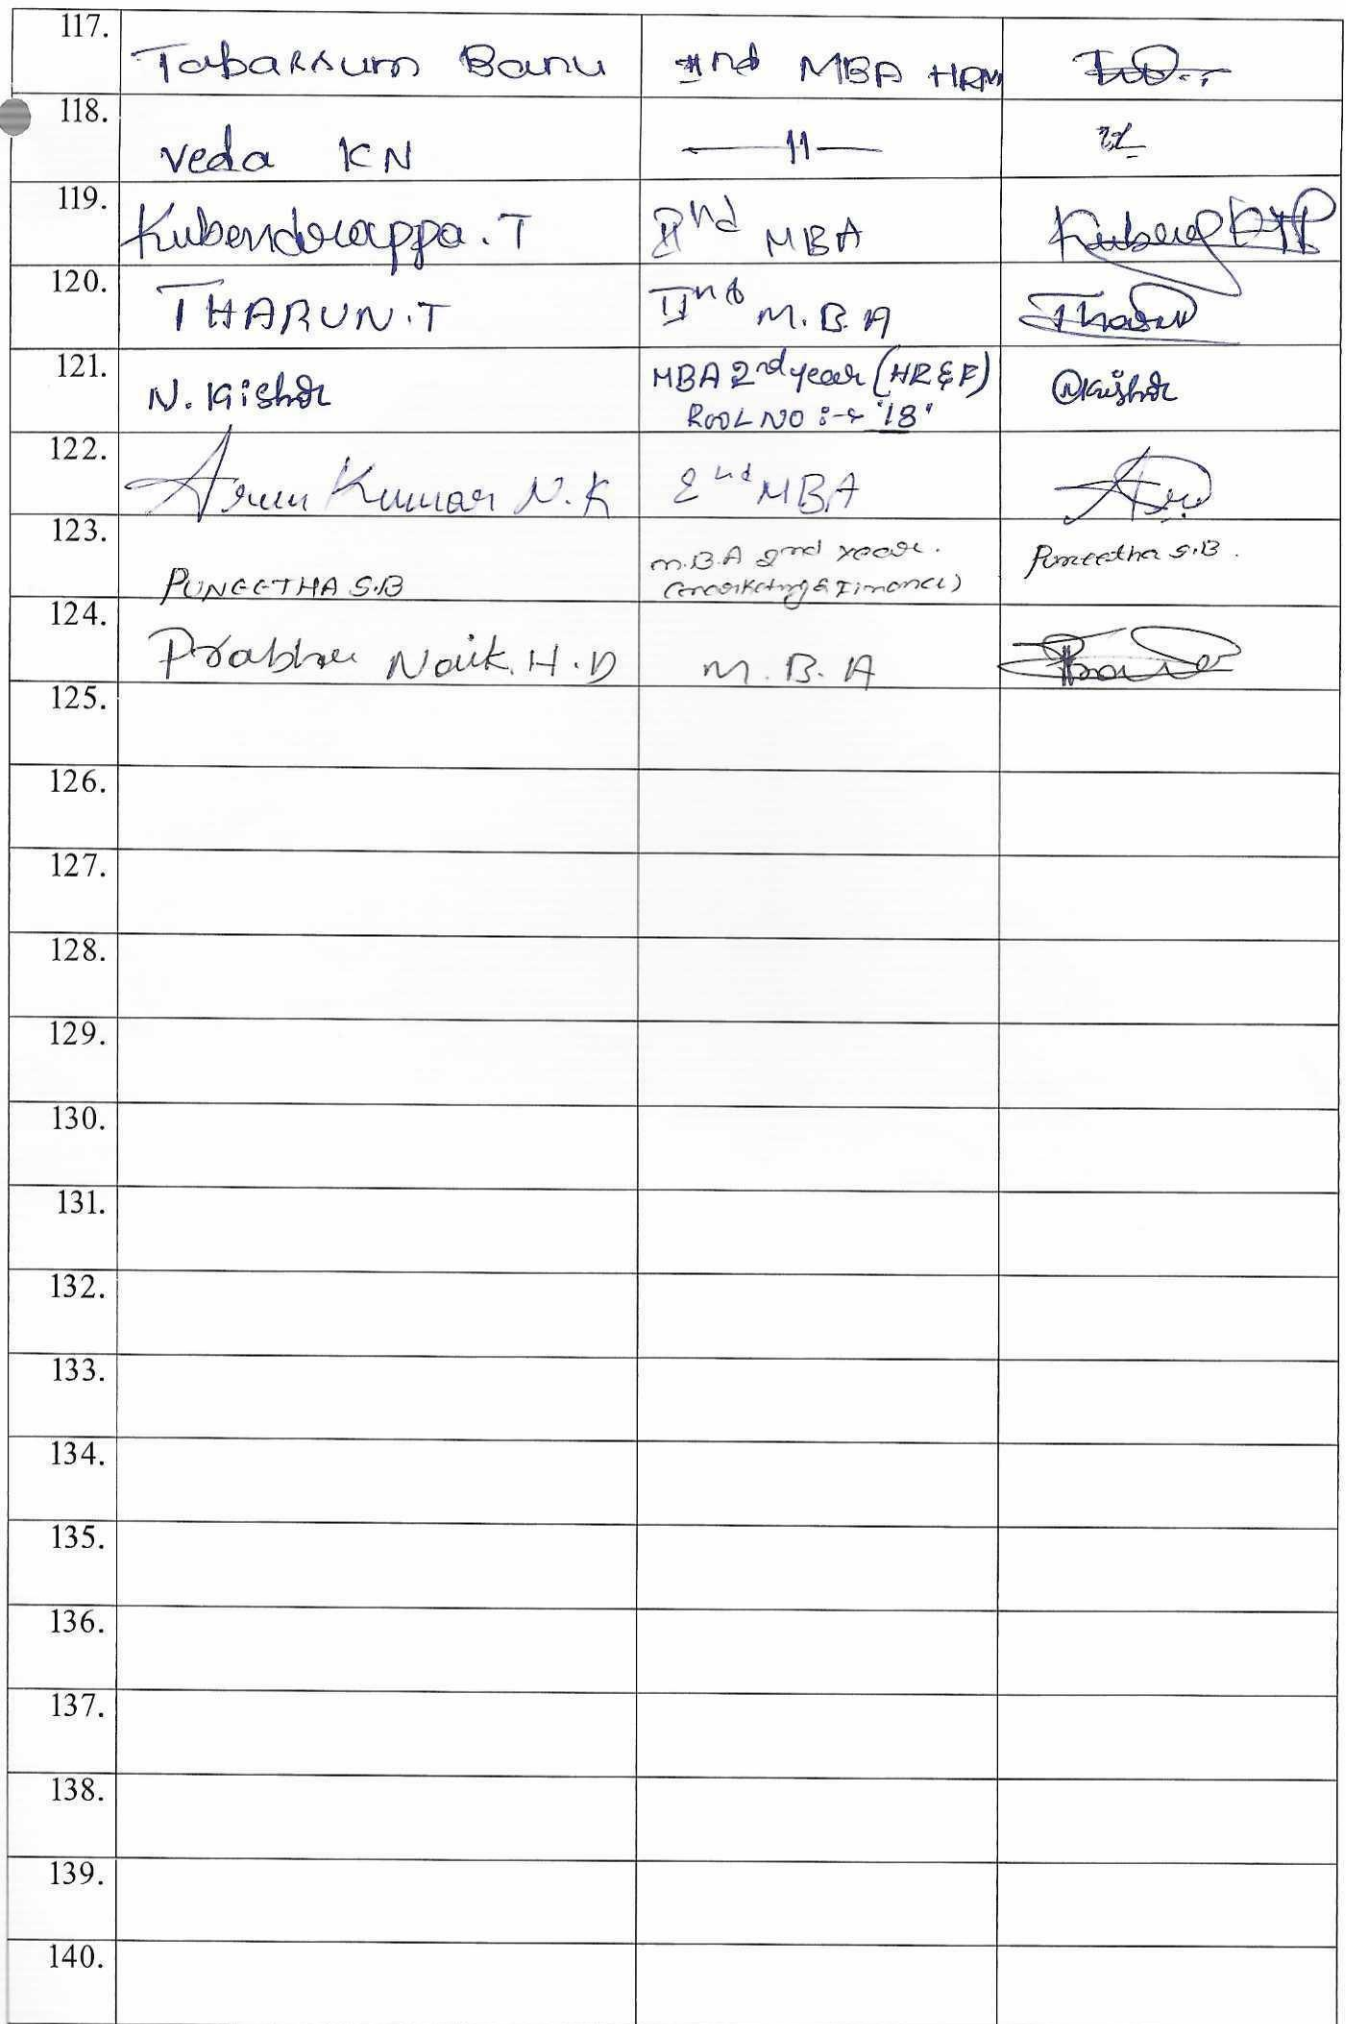 117. Tabarsum Banu IInd MBA HRM
118. Veda KN —11—
119. Kubendrappa.T IInd MBA
120. THARUN.T IInd M.B.A
121. N. Kishor MBA 2nd year (HR & F) @Kishor
ROOL NO :- "18"
122. Arun Kumar N.K 2nd MBA
123. PUNEETHA S.B M.B.A 2nd year. Puneetha S.B.
(Marketing & Finance)
124. Prabhu Naik. H.D M.B.A
125.
126.
127.
128.
129.
130.
131.
132.
133.
134.
135.
136.
137.
138.
139.
140.